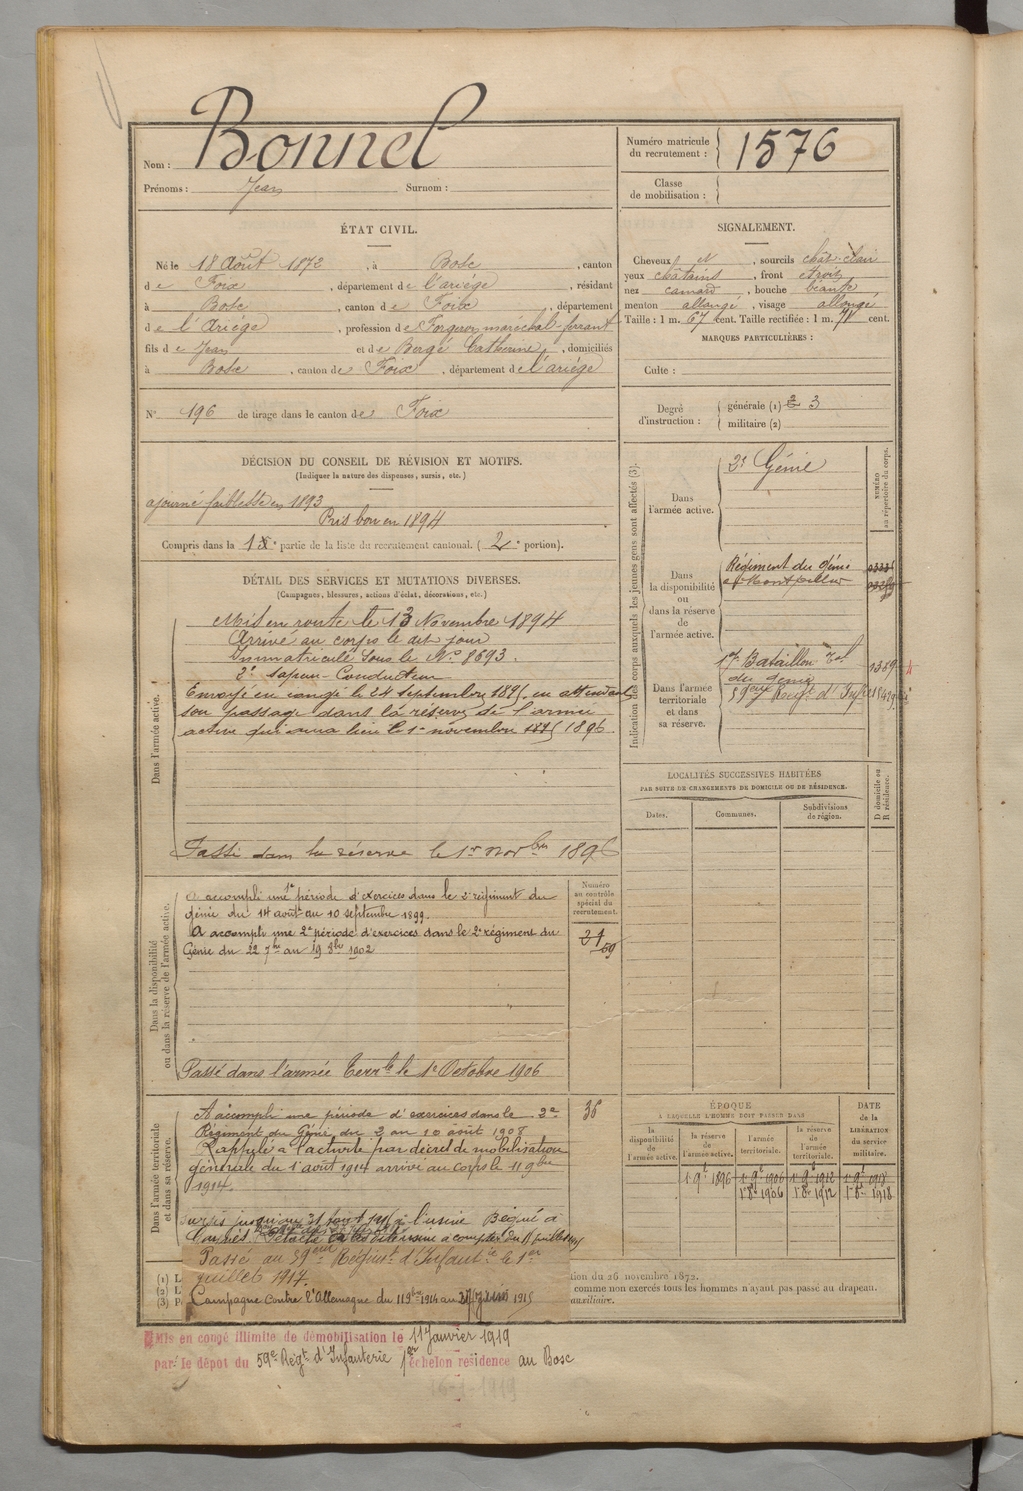 Nom : Bonnel
Prénoms : Jean Surnom :
Numéro matricule du recrutement : 1576
Classe de mobilisation :
ÉTAT CIVIL.
Né le 18 Août 1872, à Bosc, canton
de Foix, département de l'ariège, résidant
à Bosc, canton de Foix, département
de l'Ariège, profession de Forgeron maréchal-ferrant
fils de Jean et de Bergé Catherine, domiciliés
à Bosc, canton de Foix, département de l'ariège
N° 196 de tirage dans le canton de Foix
SIGNALEMENT.
Cheveux N, sourcils chât-clair
yeux châtains, front étroit
nez camard, bouche béante
menton allongé, visage allongé
Taille : 1 m. 67 cent. Taille rectifiée : 1 m. 71 cent.
MARQUES PARTICULIÈRES :
Culte :
Degré d'instruction :
générale (1) 2 3
militaire (2)
DÉCISION DU CONSEIL DE RÉVISION ET MOTIFS.
(Indiquer la nature des dispenses, sursis, etc.)
ajourné faiblesse en 1893
Pris bon en 1894
Compris dans la 1e partie de la liste du recrutement cantonal. (2e portion).
DÉTAIL DES SERVICES ET MUTATIONS DIVERSES.
(Campagnes, blessures, actions d'éclat, décorations, etc.)
Dans l'armée active.
Mis en route le 13 Novembre 1894
Arrivé au corps le dit jour
Immatriculé sous le No 8693.
2e Sapeur-Conducteur
Envoyé en congé le 24 septembre 1895, en attendant
son passage dans la réserve de l'armée
active qui aura lieu le 1er novembre 1895 1896.
Passé dans la réserve le 1er novbre 1896
Dans la disponibilité ou dans la réserve de l'armée active.
A accompli une 1e période d'exercices dans le 2e régiment du
génie du 14 août au 10 septembre 1899.
A accompli une 2e période d'exercices dans le 2e régiment du
Génie du 22 7bre au 19 8bre 1902
Passé dans l'armée Terrle le 1er Octobre 1906
Numéro au contrôle spécial du recrutement.
36
Dans l'armée territoriale et dans sa réserve.
A accompli une période d'exercices dans le 2e
Régiment du Génie du 2 au 10 août 1908
Rappelé à l'activité par décret de mobilisation
générale du 1er août 1914 arrivé au corps le 11 9bre
1914.
Sursis jusqu'au 31 août 1915 à l'usine
Passé au 59ème Régimt d'Infanterie le 1er
juillet 1917.
Campagne contre l'Allemagne du 11 9bre 1914 au
Indication des corps auxquels les jeunes gens sont affectés (3).
NUMÉRO au répertoire du corps.
Dans l'armée active.
2e Génie
Dans la disponibilité ou dans la réserve de l'armée active.
Régiment du Génie
à Montpellier
Dans l'armée territoriale et dans sa réserve.
17e Bataillon Tal
du Génie
1389
59ème Regt d'Infie
LOCALITÉS SUCCESSIVES HABITÉES
PAR SUITE DE CHANGEMENTS DE DOMICILE OU DE RÉSIDENCE.
Dates. Communes. Subdivisions de région. D domicile ou R résidence.
ÉPOQUE
A LAQUELLE L'HOMME DOIT PASSER DANS
la disponibilité de l'armée active.
la réserve de l'armée active.
l'armée territoriale.
la réserve de l'armée territoriale.
DATE de la LIBÉRATION du service militaire.
1er 9e 1896 1er 9e 1906 1er 9e 1912 1er 9e 1918
1er 8e 1906 1er 8e 1912 1er 8e 1918
(1) L
(2) L
(3) P
tion du 26 novembre 1872.
comme non exercés tous les hommes n'ayant pas passé au drapeau.
auxiliaire.
Mis en congé illimité de démobilisation le 11 Janvier 1919
par le dépôt du 59e Régt d'Infanterie 1er échelon résidence au Bosc